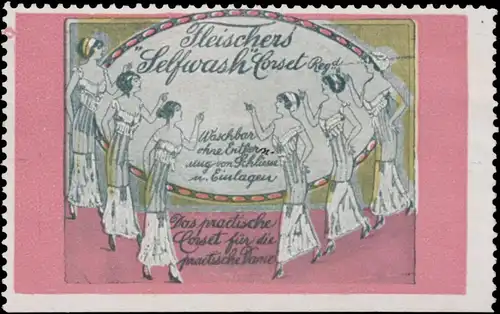 Fleischers
"Selfwash" Corset Regd.
Waschbar
ohne Entfern-
ung von Schliessen
u. Einlagen
Das practische
Corset für die
practische Dame